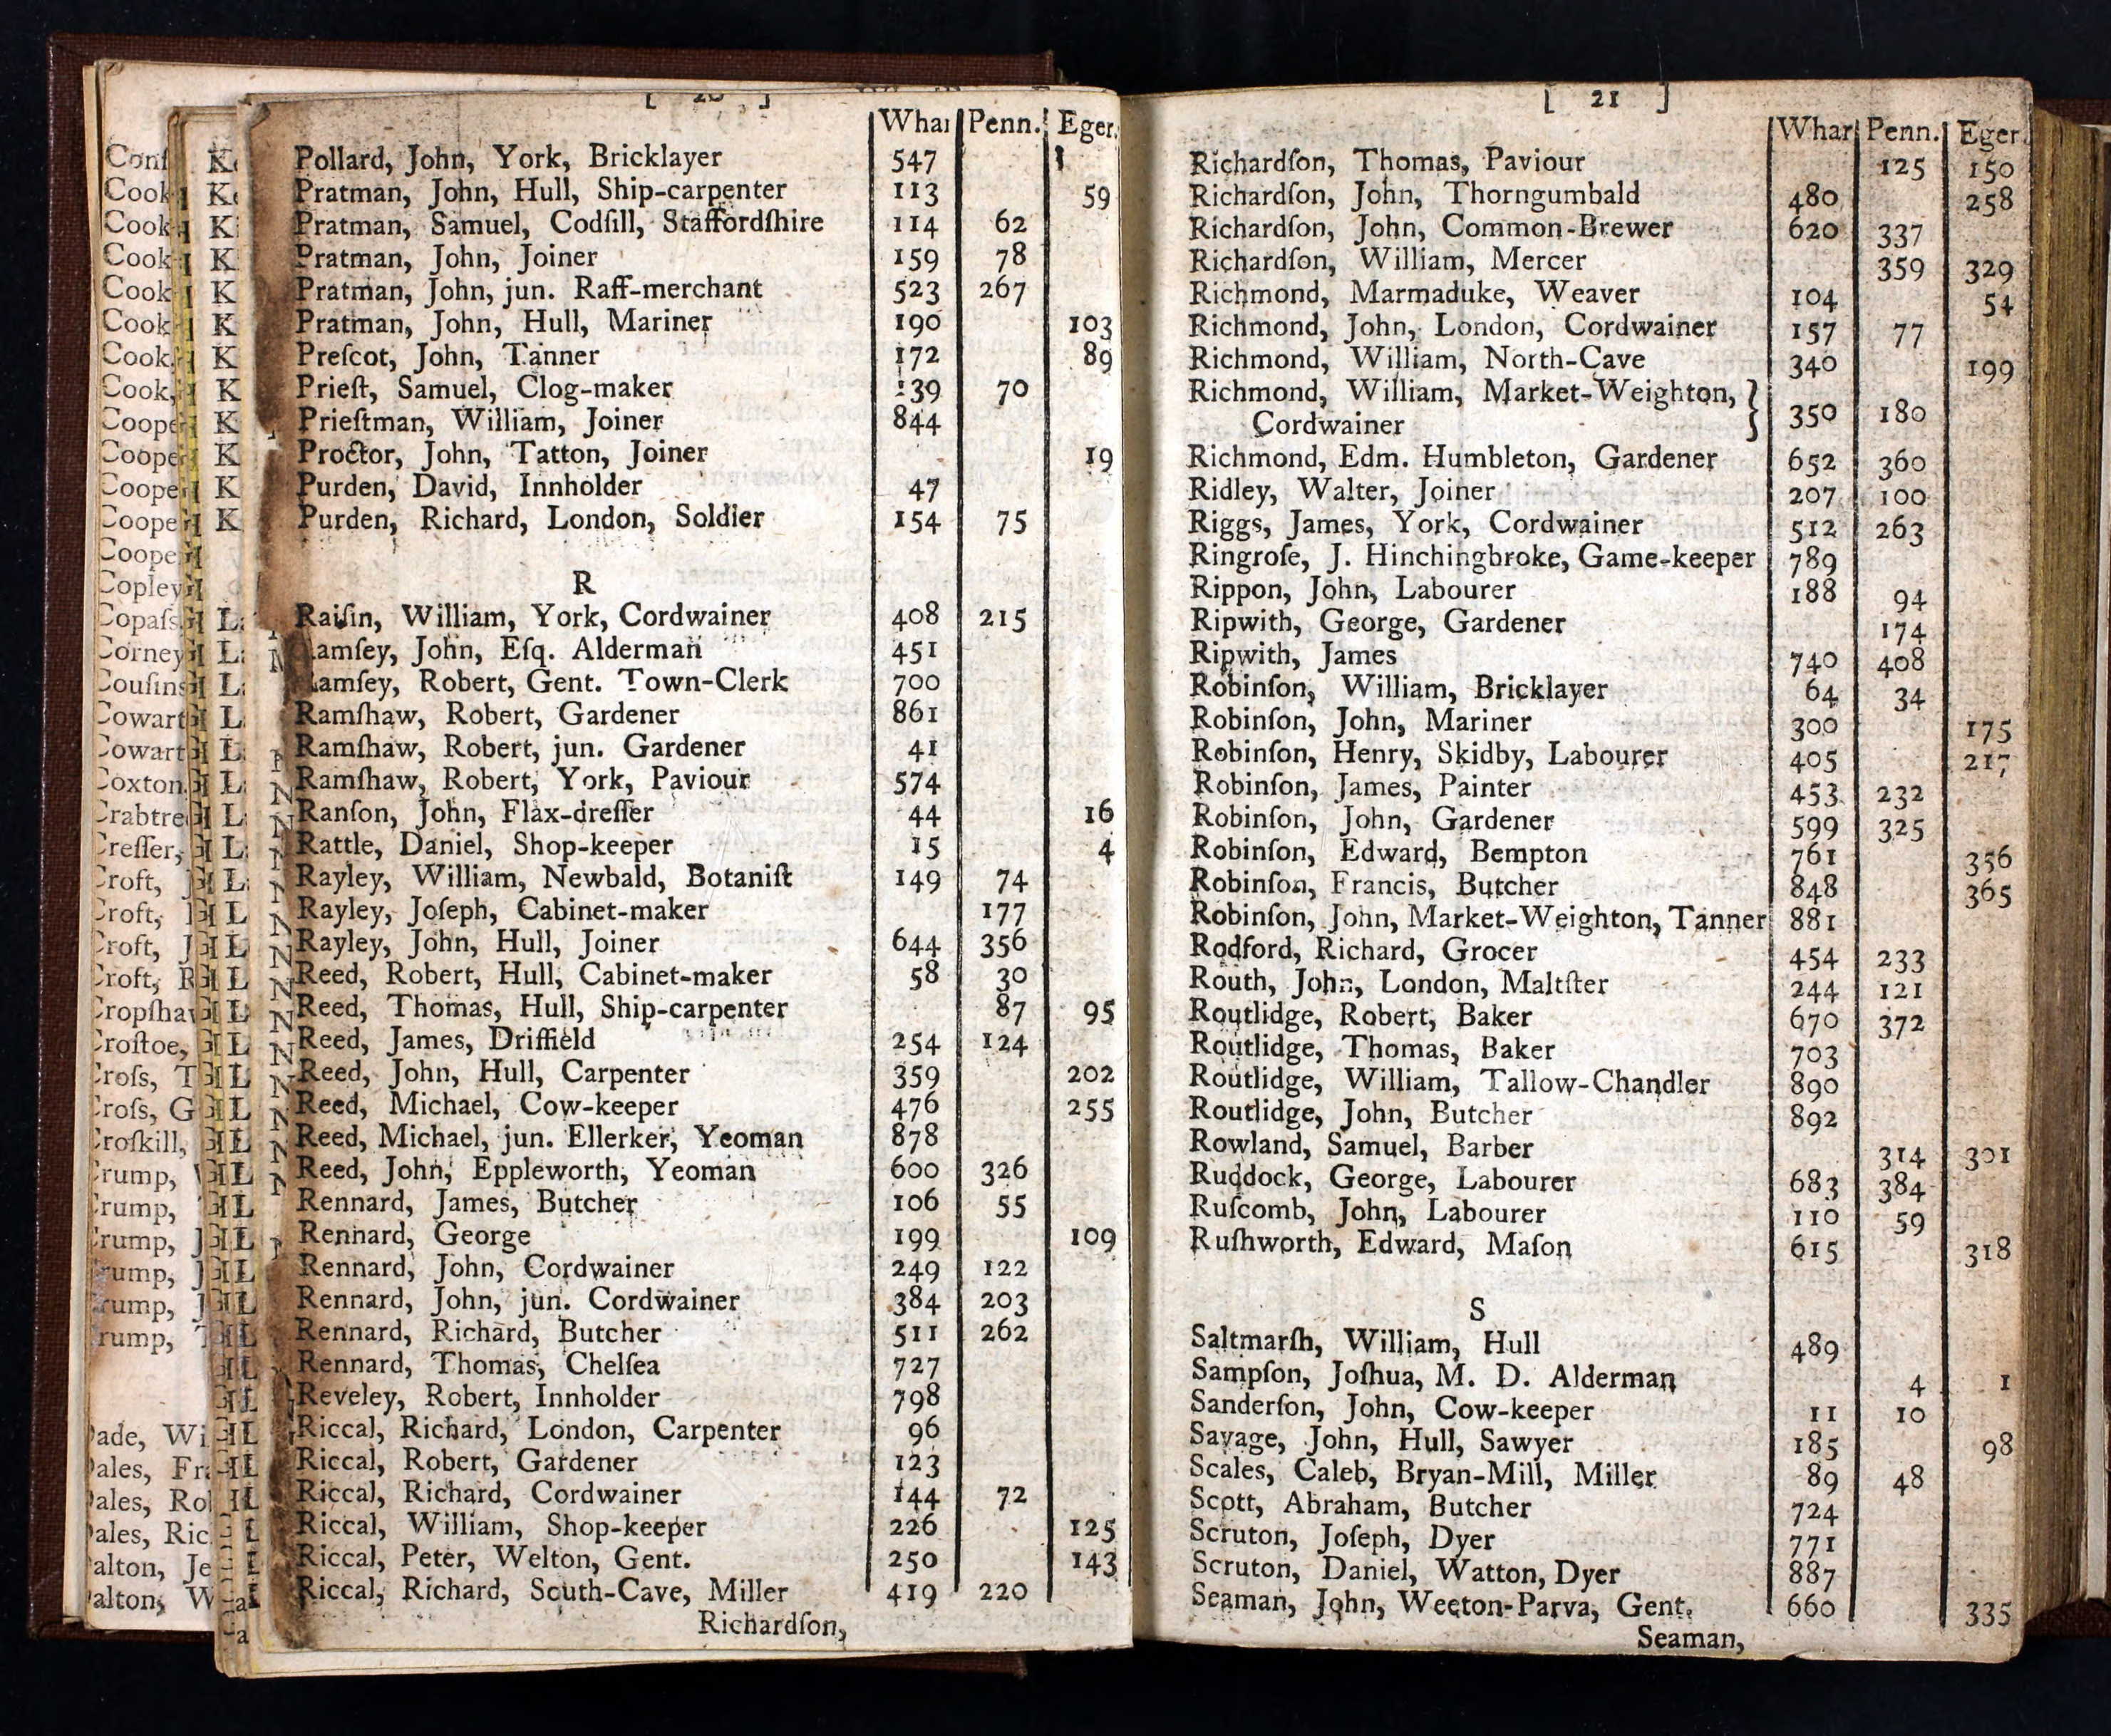 [ 20 ]
Whar Penn. Eger.
Pollard, John, York, Bricklayer 547
Pratman, John, Hull, Ship-carpenter 113 59
Pratman, Samuel, Codſill, Staffordſhire 114 62
Pratman, John, Joiner 159 78
Pratman, John, jun. Raff-merchant 523 267
Pratman, John, Hull, Mariner 190 103
Preſcot, John, Tanner 172 89
Prieſt, Samuel, Clog-maker 139 70
Prieſtman, William, Joiner 844
Proctor, John, Tatton, Joiner 19
Purden, David, Innholder 47
Purden, Richard, London, Soldier 154 75
R
Raiſin, William, York, Cordwainer 408 215
Ramſey, John, Eſq. Alderman 451
Ramſey, Robert, Gent. Town-Clerk 700
Ramſhaw, Robert, Gardener 861
Ramſhaw, Robert, jun. Gardener 41
Ramſhaw, Robert, York, Paviour 574
Ranſon, John, Flax-dreſſer 44 16
Rattle, Daniel, Shop-keeper 15 4
Rayley, William, Newbald, Botaniſt 149 74
Rayley, Joſeph, Cabinet-maker 177
Rayley, John, Hull, Joiner 644 356
Reed, Robert, Hull, Cabinet-maker 58 30
Reed, Thomas, Hull, Ship-carpenter 87 95
Reed, James, Driffield 254 124
Reed, John, Hull, Carpenter 359 202
Reed, Michael, Cow-keeper 476 255
Reed, Michael, jun. Ellerker, Yeoman 878
Reed, John, Eppleworth, Yeoman 600 326
Rennard, James, Butcher 106 55
Rennard, George 199 109
Rennard, John, Cordwainer 249 122
Rennard, John, jun. Cordwainer 384 203
Rennard, Richard, Butcher 511 262
Rennard, Thomas, Chelſea 727
Reveley, Robert, Innholder 798
Riccal, Richard, London, Carpenter 96
Riccal, Robert, Gardener 123
Riccal, Richard, Cordwainer 144 72
Riccal, William, Shop-keeper 226 125
Riccal, Peter, Welton, Gent. 250 143
Riccal, Richard, South-Cave, Miller 419 220
Richardſon,
[ 21 ]
Whar Penn. Eger.
Richardſon, Thomas, Paviour 125 150
Richardſon, John, Thorngumbald 480 258
Richardſon, John, Common-Brewer 620 337
Richardſon, William, Mercer 359 329
Richmond, Marmaduke, Weaver 104 54
Richmond, John, London, Cordwainer 157 77
Richmond, William, North-Cave 340 199
Richmond, William, Market-Weighton, }
Cordwainer 350 180
Richmond, Edm. Humbleton, Gardener 652 360
Ridley, Walter, Joiner 207 100
Riggs, James, York, Cordwainer 512 263
Ringroſe, J. Hinchingbroke, Game-keeper 789
Rippon, John, Labourer 188 94
Ripwith, George, Gardener 174
Ripwith, James 740 408
Robinſon, William, Bricklayer 64 34
Robinſon, John, Mariner 300 175
Robinſon, Henry, Skidby, Labourer 405 217
Robinſon, James, Painter 453 232
Robinſon, John, Gardener 599 325
Robinſon, Edward, Bempton 761 356
Robinſon, Francis, Butcher 848 365
Robinſon, John, Market-Weighton, Tanner 881
Rodford, Richard, Grocer 454 233
Routh, John, London, Maltſter 244 121
Routlidge, Robert, Baker 670 372
Routlidge, Thomas, Baker 703
Routlidge, William, Tallow-Chandler 890
Routlidge, John, Butcher 892
Rowland, Samuel, Barber 314 301
Ruddock, George, Labourer 683 384
Ruſcomb, John, Labourer 110 59
Ruſhworth, Edward, Maſon 615 318
S
Saltmarſh, William, Hull 489
Sampſon, Joſhua, M. D. Alderman 4 1
Sanderſon, John, Cow-keeper 11 10
Savage, John, Hull, Sawyer 185 98
Scales, Caleb, Bryan-Mill, Miller 89 48
Scott, Abraham, Butcher 724
Scruton, Joſeph, Dyer 771
Scruton, Daniel, Watton, Dyer 887
Seaman, John, Weeton-Parva, Gent. 660 335
Seaman,